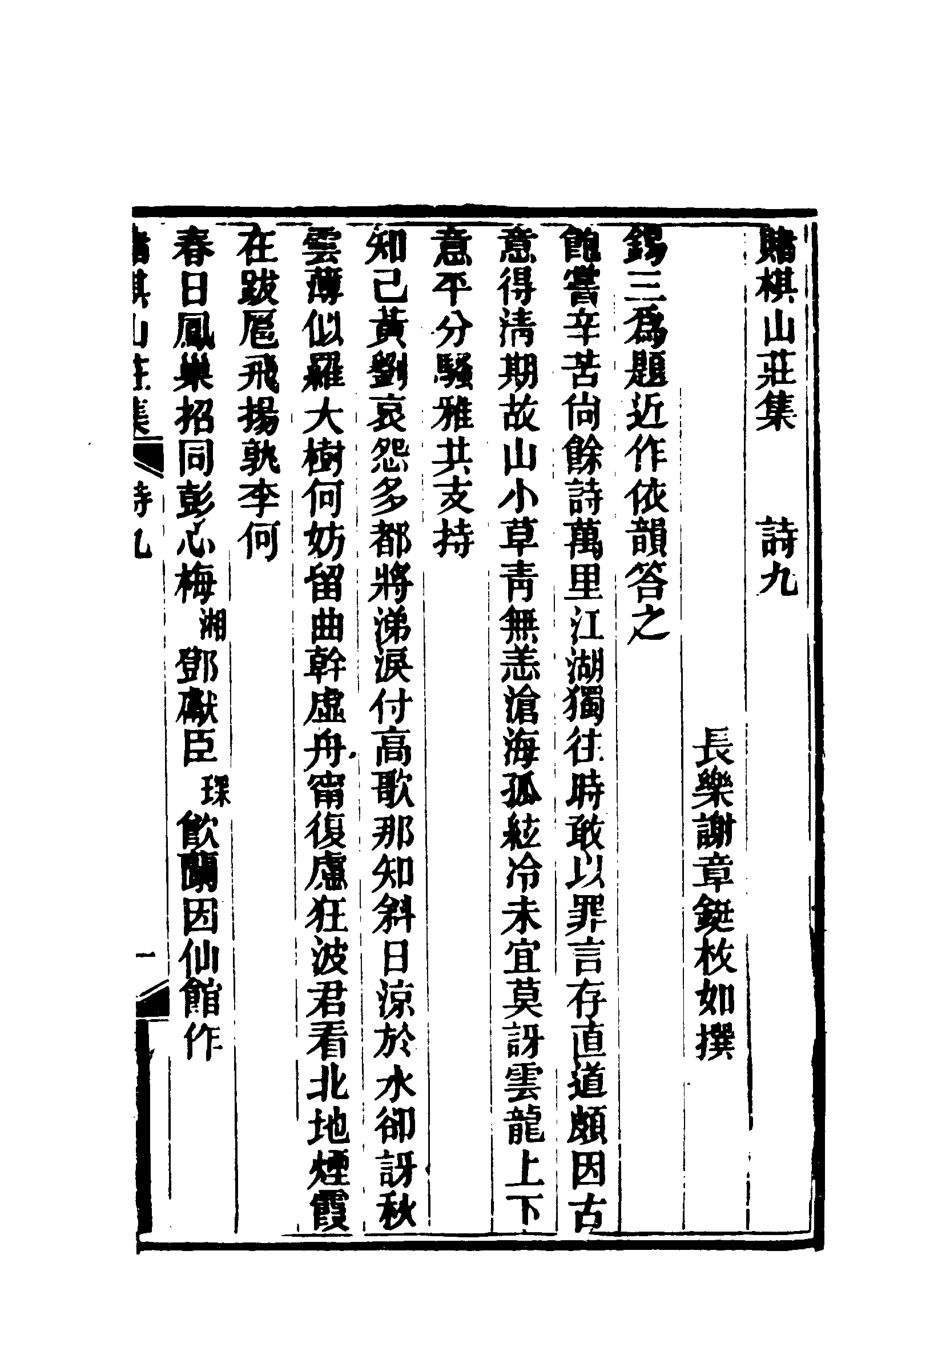 賭棋山莊集　詩九
長樂謝章鋌枚如撰
錫三爲題近作依韻答之
飽嘗辛苦尙餘詩萬里江湖獨往時敢以罪言存直道頗因古
意得淸期故山小草靑無恙滄海孤絃冷未宜莫訝雲龍上下
意平分騷雅共支持
知己黃劉哀怨多都將涕淚付高歌那知斜日涼於水卻訝秋
雲薄似羅大樹何妨留曲幹虛舟甯復慮狂波君看北地煙霞
在跋扈飛揚孰李何
春日鳳巢招同彭心梅湘鄧獻臣琛飮蘭因仙館作
賭棋山莊集　詩九　一